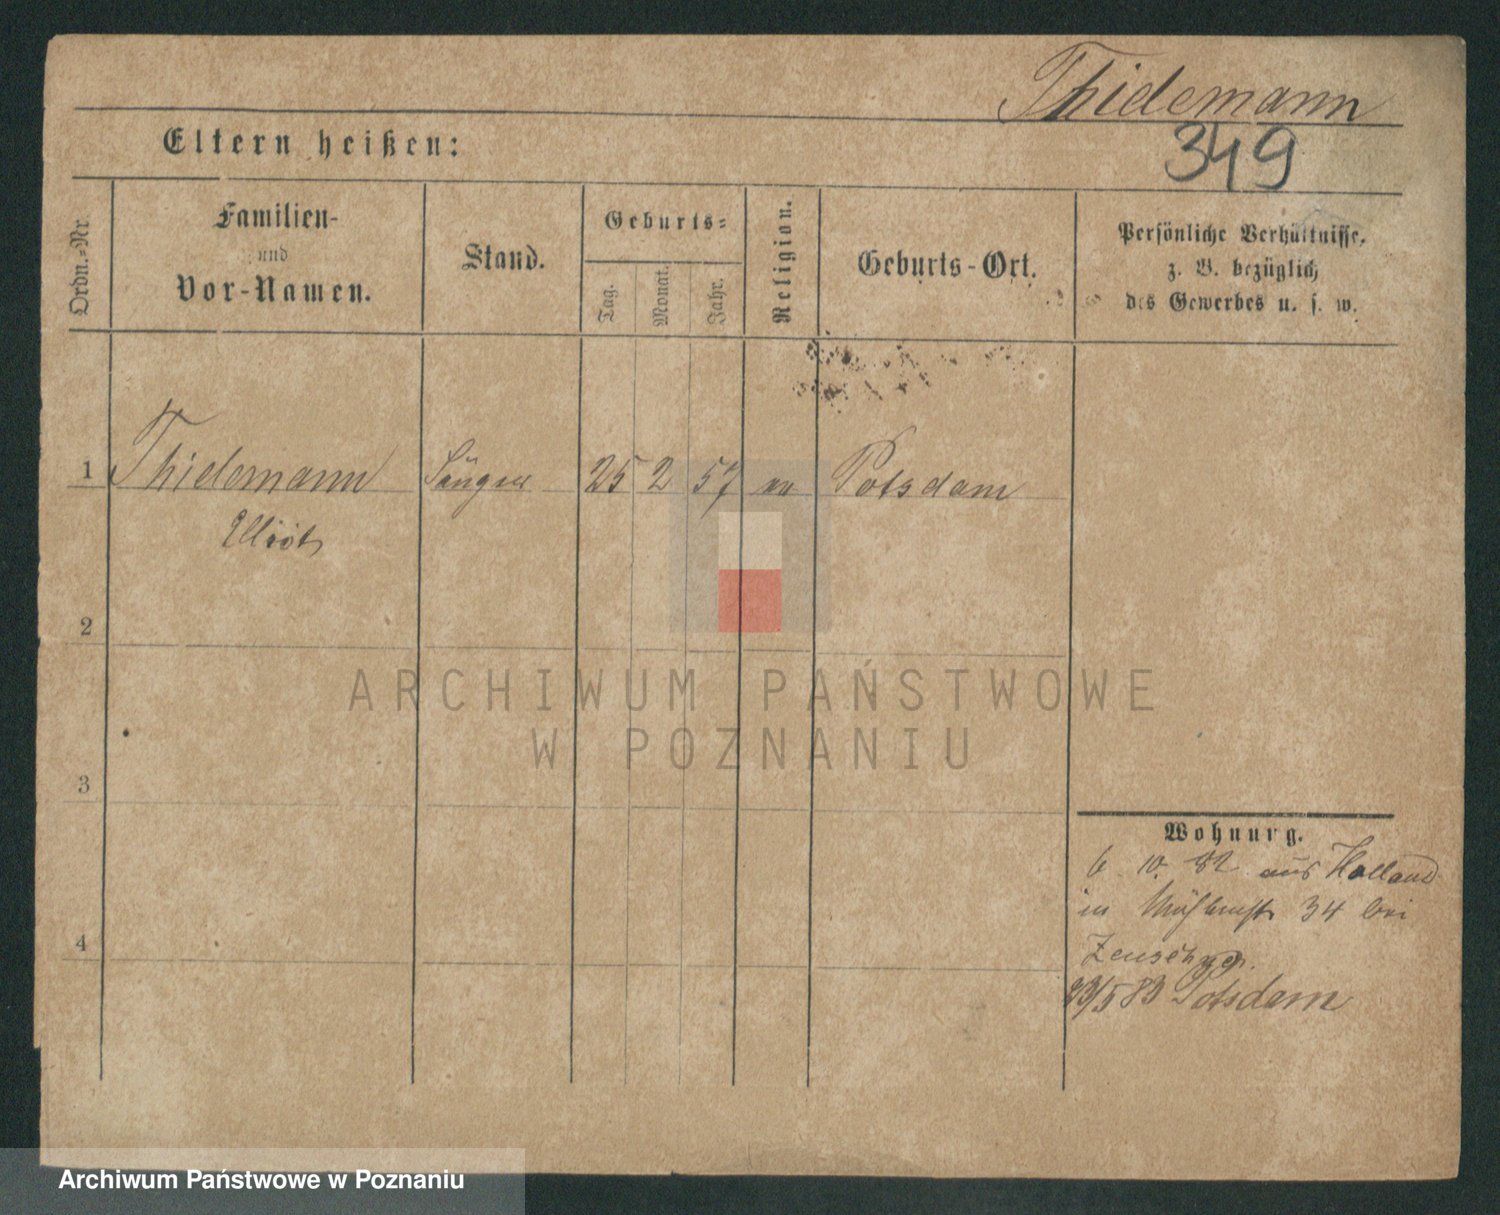 Thidemann
349
Eltern heißen:
Ordn.-Nr.
Familien-
und
Vor-Namen.
Stand.
Geburts-
Tag.
Monat.
Jahr.
Religion.
Geburts-Ort.
Persönliche Verhältnisse,
z. B. bezüglich
des Gewerbes u. s. w.
1 Thidemann Sänger 25 2 57 ev Potsdam
Elliot
2
3
4
Wohnung.
6 10 82 aus Holland
in Mühlenstr 34 bei
23/5 83 Potsdam
ARCHIWUM PAŃSTWOWE
W POZNANIU
Archiwum Państwowe w Poznaniu